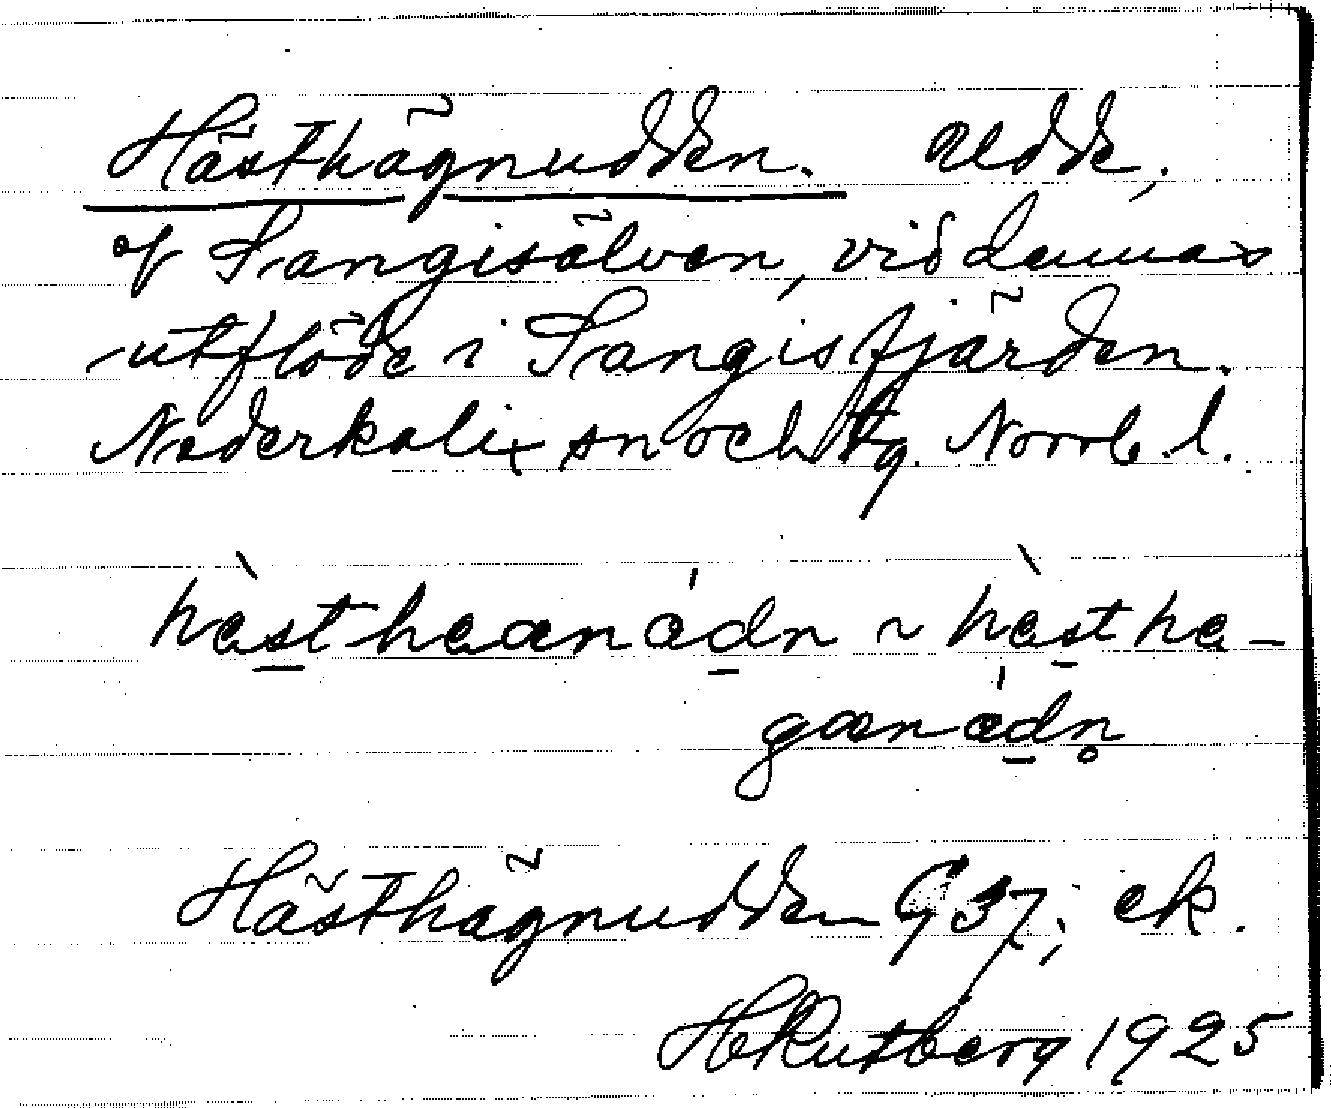 Hästhägnudden. Udde,
af Sangisälven, vid dennas
utflöde i Sangisfjärden.
Nederkalix sn och tg. Norrb l.
hèstheænádn ~ hèsthe-
gænádn̥
Hästhägnudden G 37; ek.
HRutberg 1925